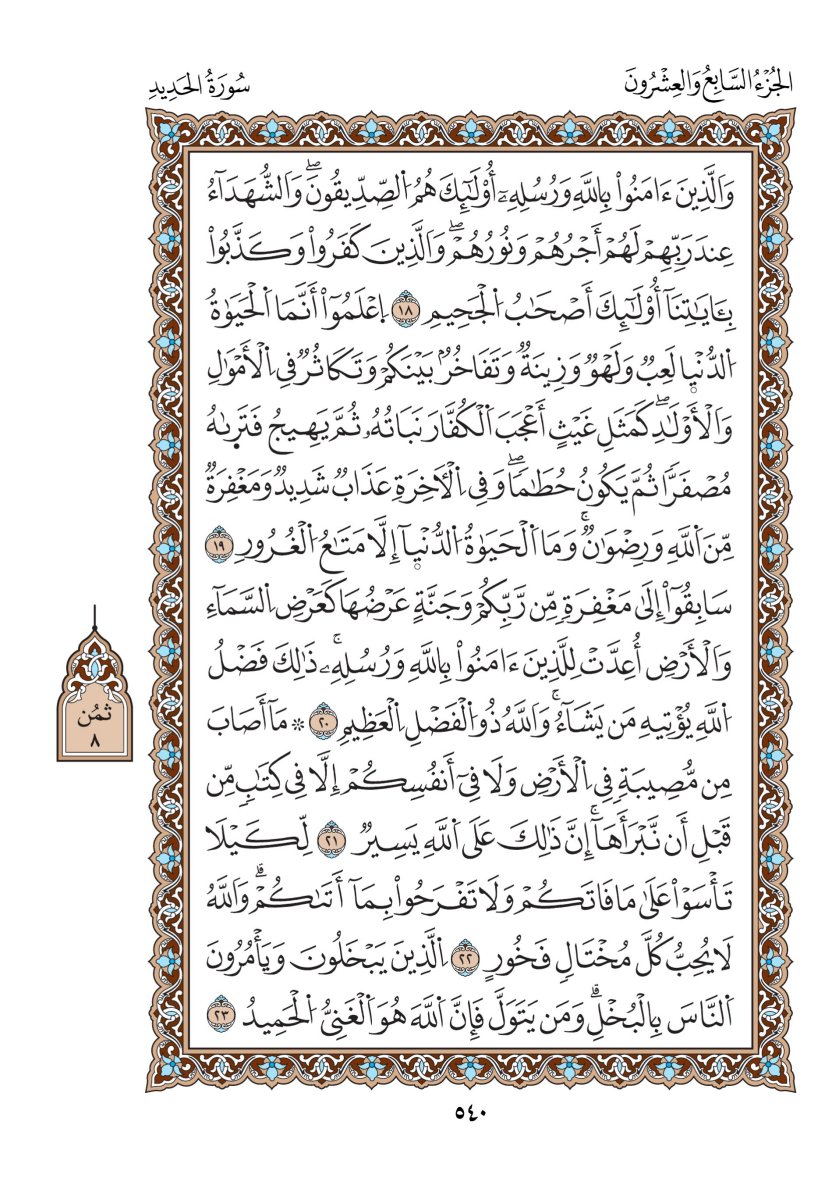 الجُزْءُ السَّابِعُ وَالعِشْرُونَ
سُورَةُ الحَدِيدِ
وَالَّذِينَ ءَامَنُواْ بِاللَّهِ وَرُسُلِهِۦٓ أُوْلَٰٓئِكَ هُمُ ٱلصِّدِّيقُونَۖ وَالشُّهَدَآءُ
عِندَ رَبِّهِمْ لَهُمْ أَجْرُهُمْ وَنُورُهُمْۖ وَالَّذِينَ كَفَرُواْ وَكَذَّبُواْ
بِـَٔايَٰتِنَآ أُوْلَٰٓئِكَ أَصْحَٰبُ ٱلْجَحِيمِ ١٨ ٱِعْلَمُوٓاْ أَنَّمَا ٱلْحَيَوٰةُ
ٱلدُّنْيا لَعِبٌ وَلَهْوٌ وَزِينَةٌ وَتَفَاخُرٌۢ بَيْنَكُمْ وَتَكَاثُرٌ فِي ٱلْأَمْوَٰلِ
وَالْأَوْلَٰدِۖ كَمَثَلِ غَيْثٍ أَعْجَبَ ٱلْكُفَّارَ نَبَاتُهُۥ ثُمَّ يَهِيجُ فَتَرىٰهُ
مُصْفَرّٗا ثُمَّ يَكُونُ حُطَٰمٗاۖ وَفِي ٱلْأٓخِرَةِ عَذَابٌ شَدِيدٌ وَمَغْفِرَةٌ
مِّنَ ٱللَّهِ وَرِضْوَٰنٌۚ وَمَا ٱلْحَيَوٰةُ ٱلدُّنْيآ إِلَّا مَتَٰعُ ٱلْغُرُورِ ١٩
سَابِقُوٓاْ إِلَىٰ مَغْفِرَةٍ مِّن رَّبِّكُمْ وَجَنَّةٍ عَرْضُهَا كَعَرْضِ ٱلسَّمَآءِ
وَالْأَرْضِ أُعِدَّتْ لِلَّذِينَ ءَامَنُواْ بِاللَّهِ وَرُسُلِهِۦۚ ذَٰلِكَ فَضْلُ
ٱللَّهِ يُؤْتِيهِ مَن يَشَآءُۚ وَاللَّهُ ذُو ٱلْفَضْلِ ٱلْعَظِيمِ ٢٠ ۞ مَآ أَصَابَ
مِن مُّصِيبَةٍ فِي ٱلْأَرْضِ وَلَا فِيٓ أَنفُسِكُمْ إِلَّا فِي كِتَٰبٍ مِّن
قَبْلِ أَن نَّبْرَأَهَآۚ إِنَّ ذَٰلِكَ عَلَى ٱللَّهِ يَسِيرٌ ٢١ لِّكَيْلَا
تَأْسَوْاْ عَلَىٰ مَا فَاتَكُمْ وَلَا تَفْرَحُواْ بِمَآ أَتَىٰكُمْۗ وَاللَّهُ
لَا يُحِبُّ كُلَّ مُخْتَالٍ فَخُورٍ ٢٢ ٱلَّذِينَ يَبْخَلُونَ وَيَأْمُرُونَ
ٱلنَّاسَ بِالْبُخْلِۗ وَمَن يَتَوَلَّ فَإِنَّ ٱللَّهَ هُوَ ٱلْغَنِيُّ ٱلْحَمِيدُ ٢٣
ثمُن
٨
٥٤٠